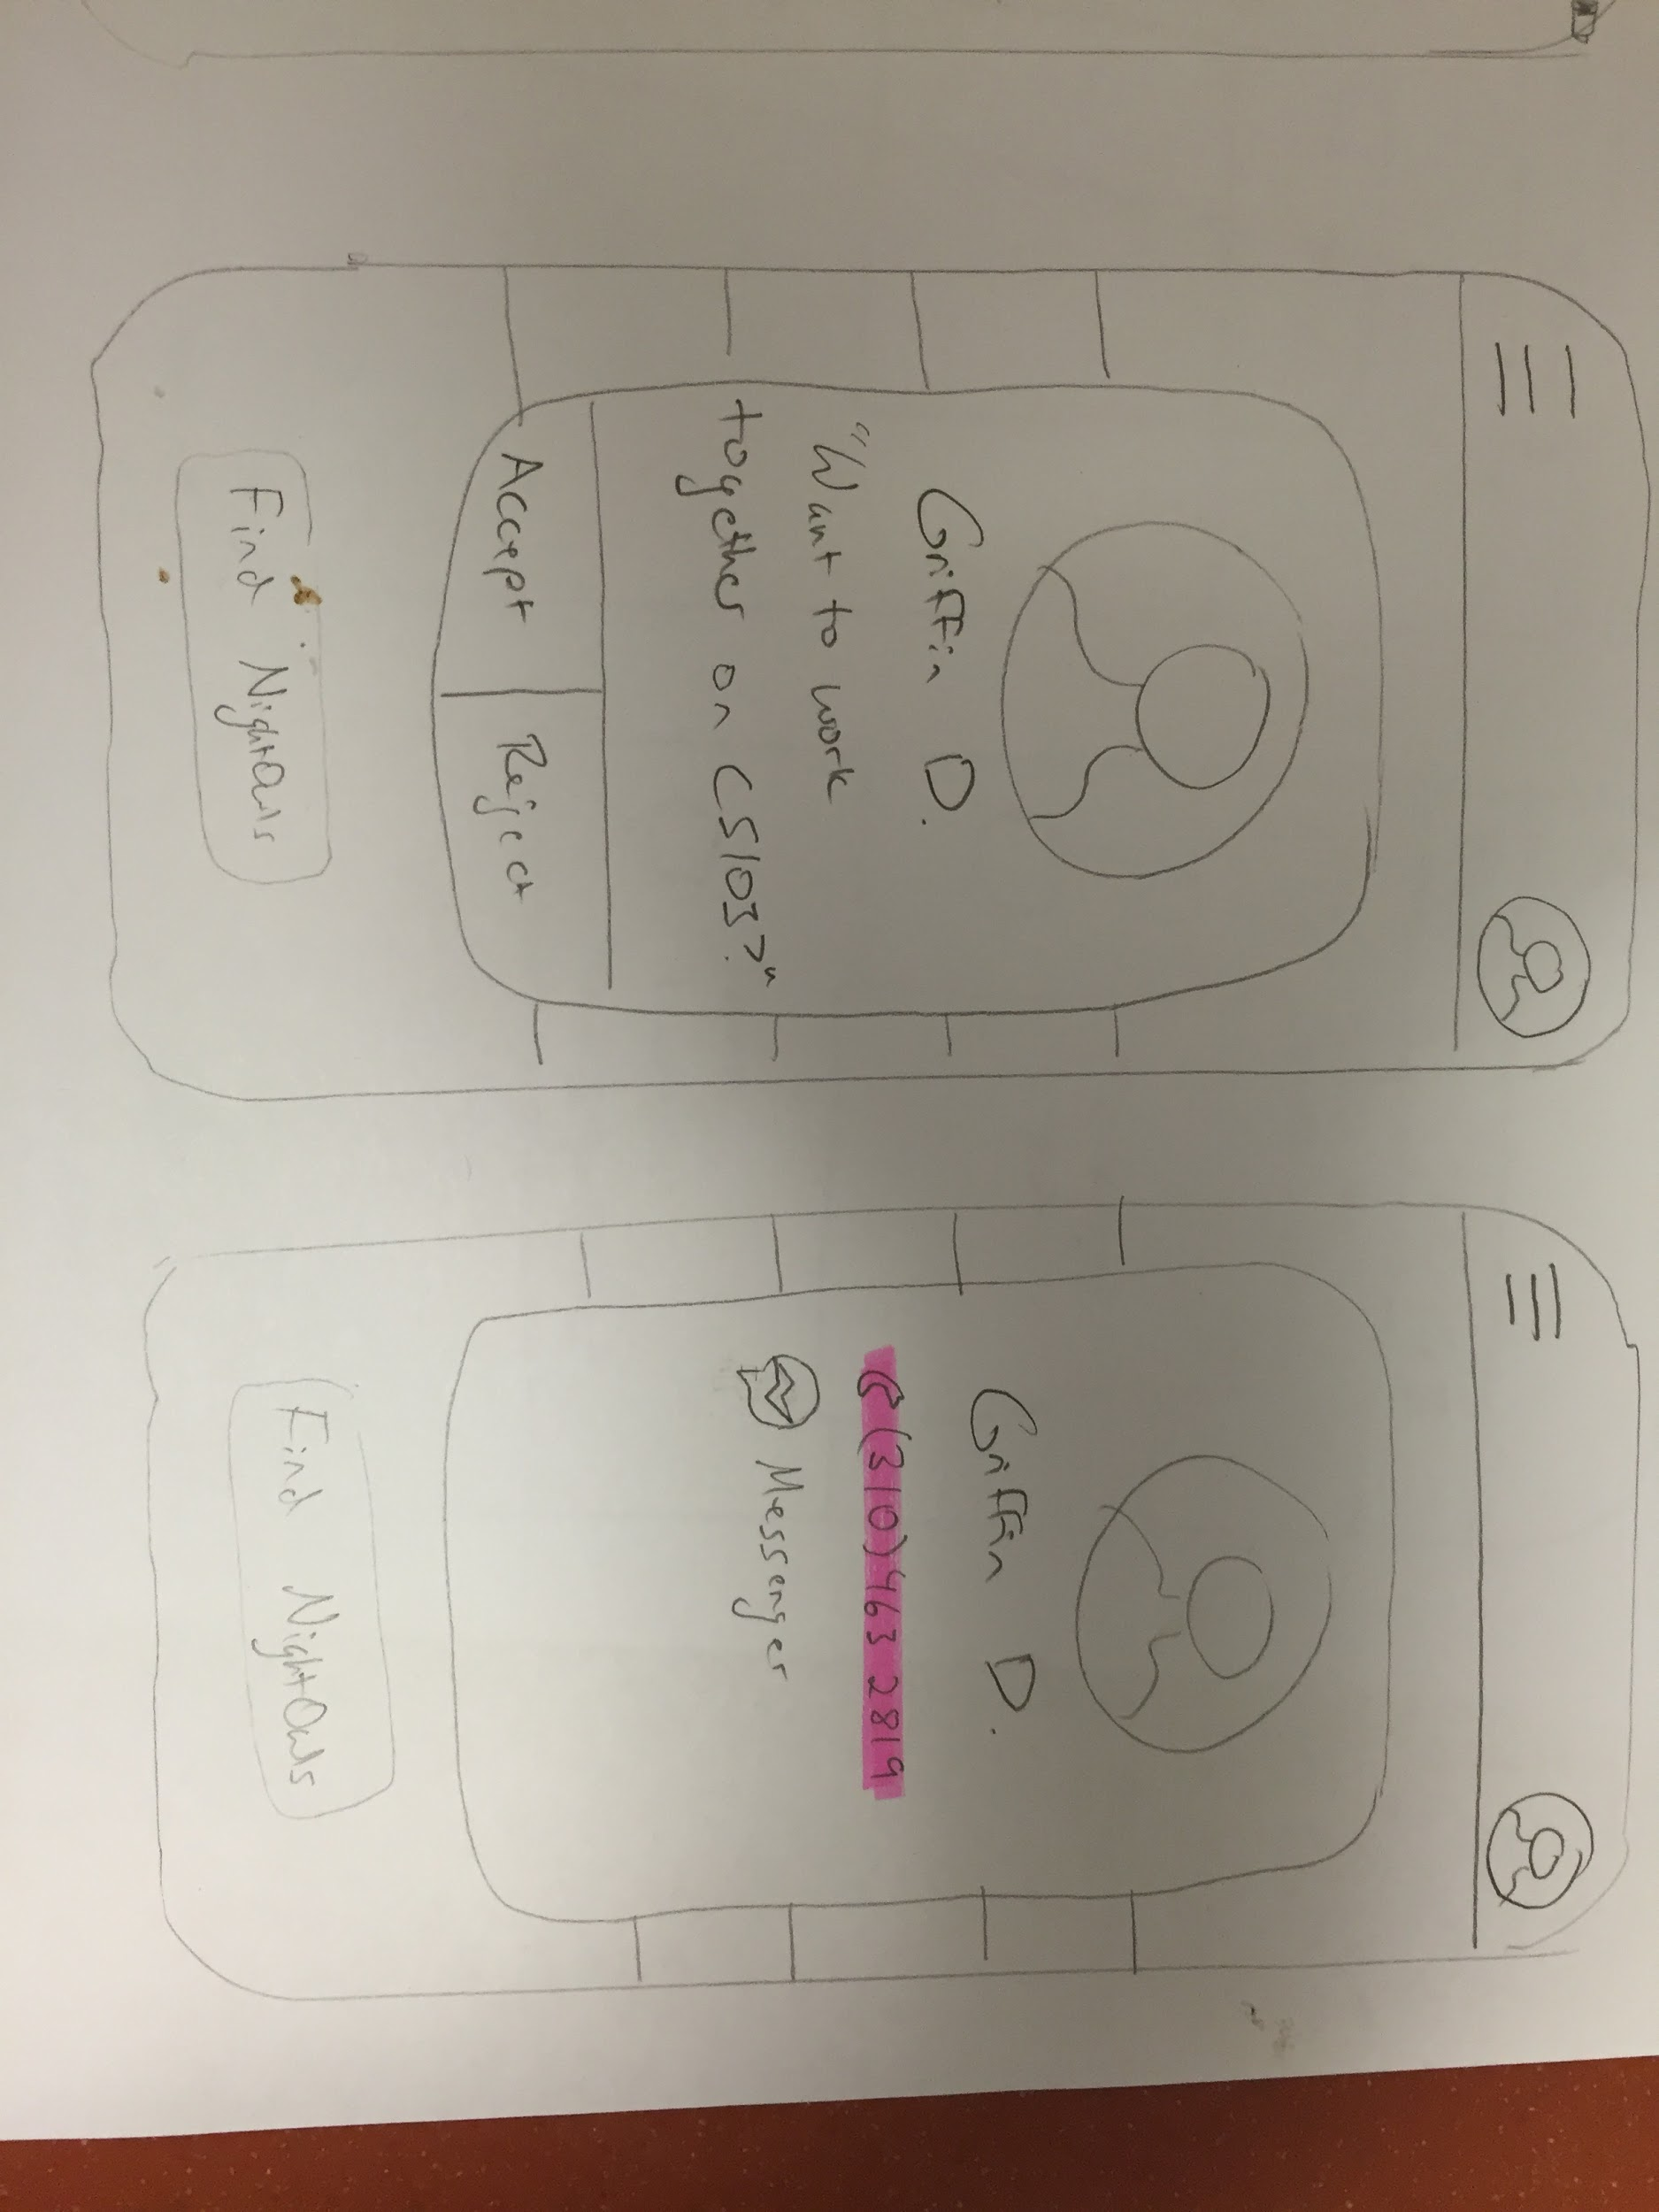 Griffin D.
"Want to work
together on CS103?"
Accept
Reject
Find NightOwls
Griffin D.
(310) 463 2819
Messenger
Find NightOwls